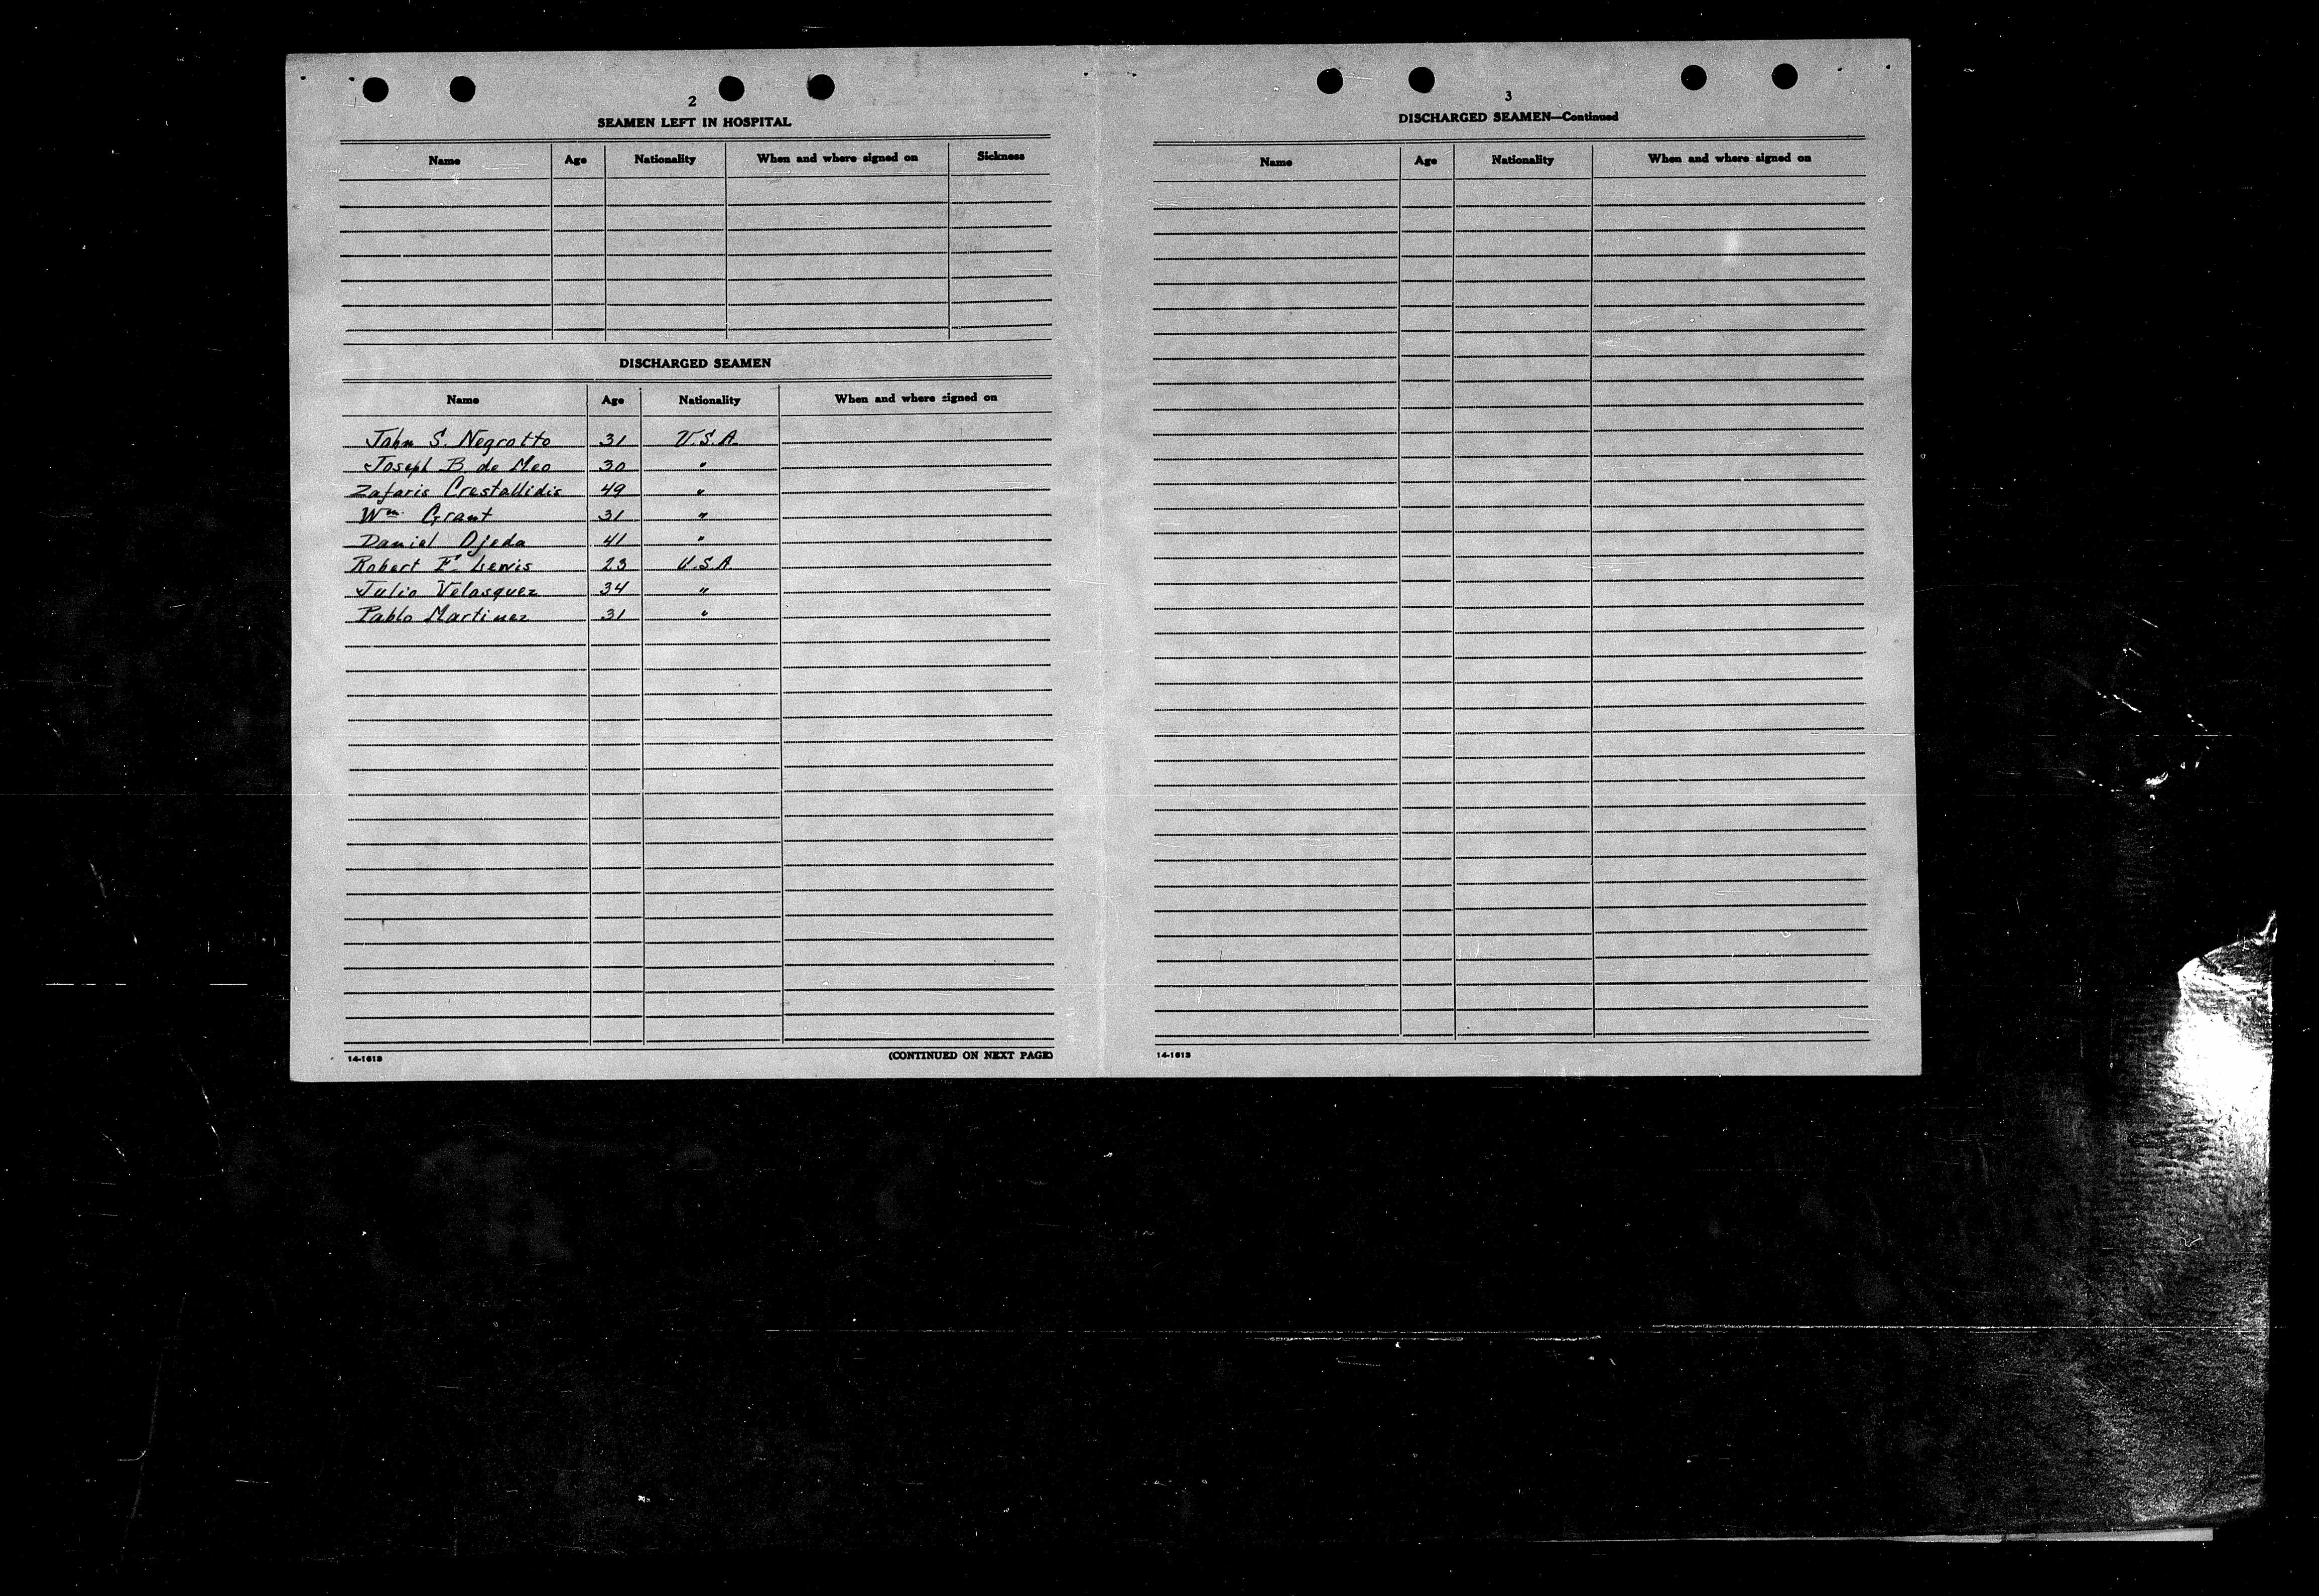 2
SEAMEN LEFT IN HOSPITAL
Name Age Nationality When and where signed on Sickness
DISCHARGED SEAMEN
Name Age Nationality When and where signed on
John S. Negrotto 31 U.S.A.
Joseph B. de Meo 30 "
Zafaris Crestallidis 49 "
Wm. Grant 31 "
Daniel Ojeda 41 "
Robert E. Lewis 23 U.S.A.
Julio Velasquez 34 "
Pablo Martinez 31 "
14-1613 (CONTINUED ON NEXT PAGE)
3
DISCHARGED SEAMEN—Continued
Name Age Nationality When and where signed on
14-1613